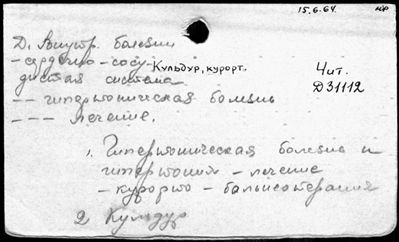 15.6.64.
Д. Внутр. болезни
- сердечно - сосу-
Кульдур, курорт.
дистая система
Чит.
Д31112
-- гипертоническая болезнь
--- лечение.
1. Гипертоническая болезнь и
гипертония - лечение
- курорто - бальнеотерапия
2 Кульдур